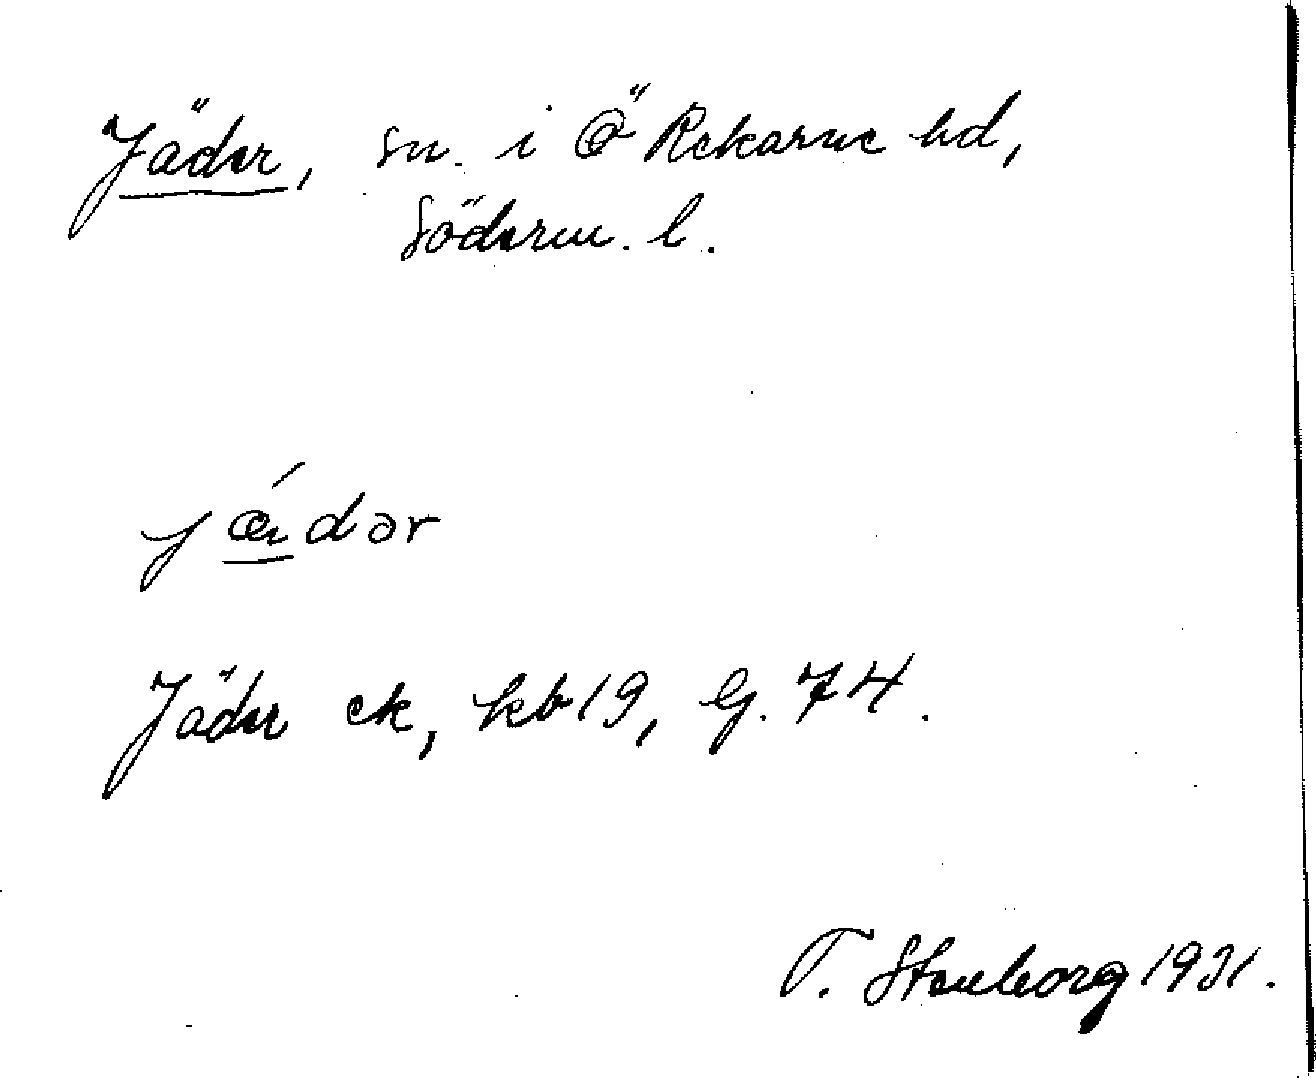 Jäder, sn. i Ö Rekarne hd,
Söderm. l.
jǽdər
Jäder ek, kb 19, G. 74.
T. Stenborg 1931.